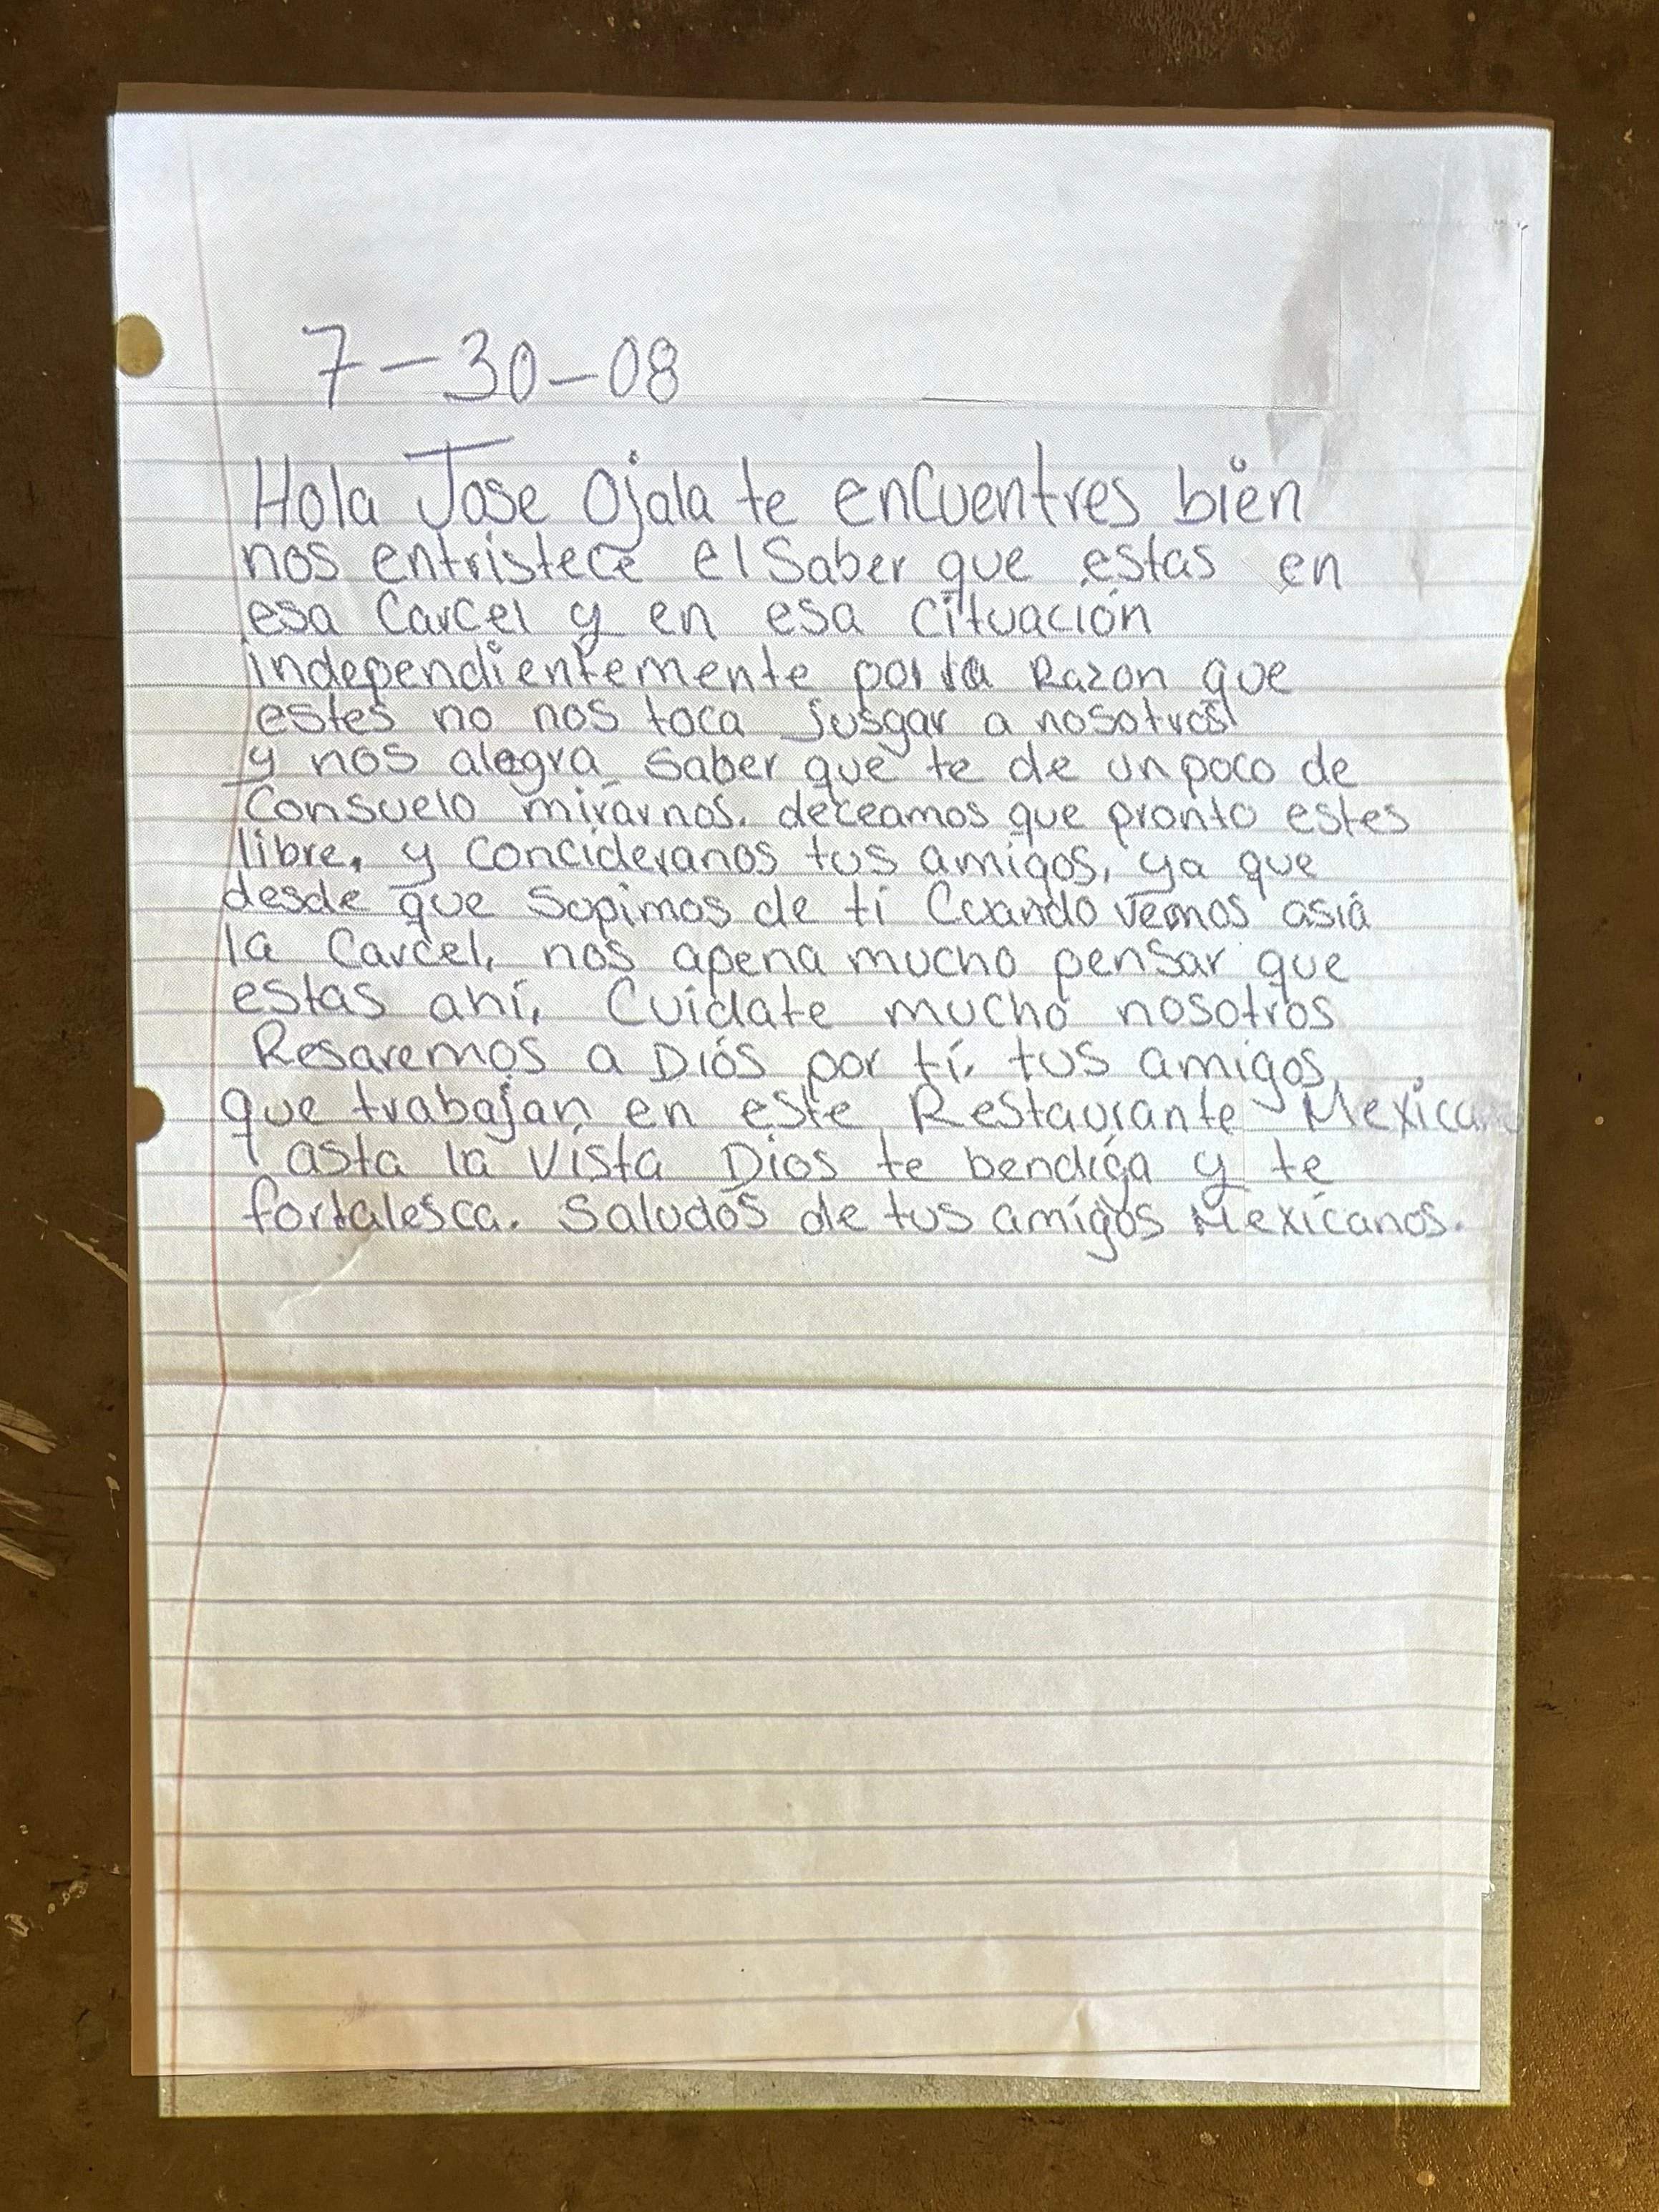 7-30-08
Hola Jose Ojala te encuentres bien
nos entristece el Saber que estas en
esa Carcel y en esa cituación
independientemente por la Razon que
estes no nos toca jusgar a nosotros
y nos alegra saber que te de un poco de
Consuelo mirarnos. deceamos que pronto estes
libre, y concideranos tus amigos, ya que
desde que Supimos de ti Cuando vemos asia
la Carcel, nos apena mucho pensar que
estas ahi, Cuidate mucho nosotros
Resaremos a Diós por tí. tus amigos
que trabajan en este Restaurante
asta la vista Dios te bendiga y te
fortalesca. Saludos de tus amigos Mexicanos.